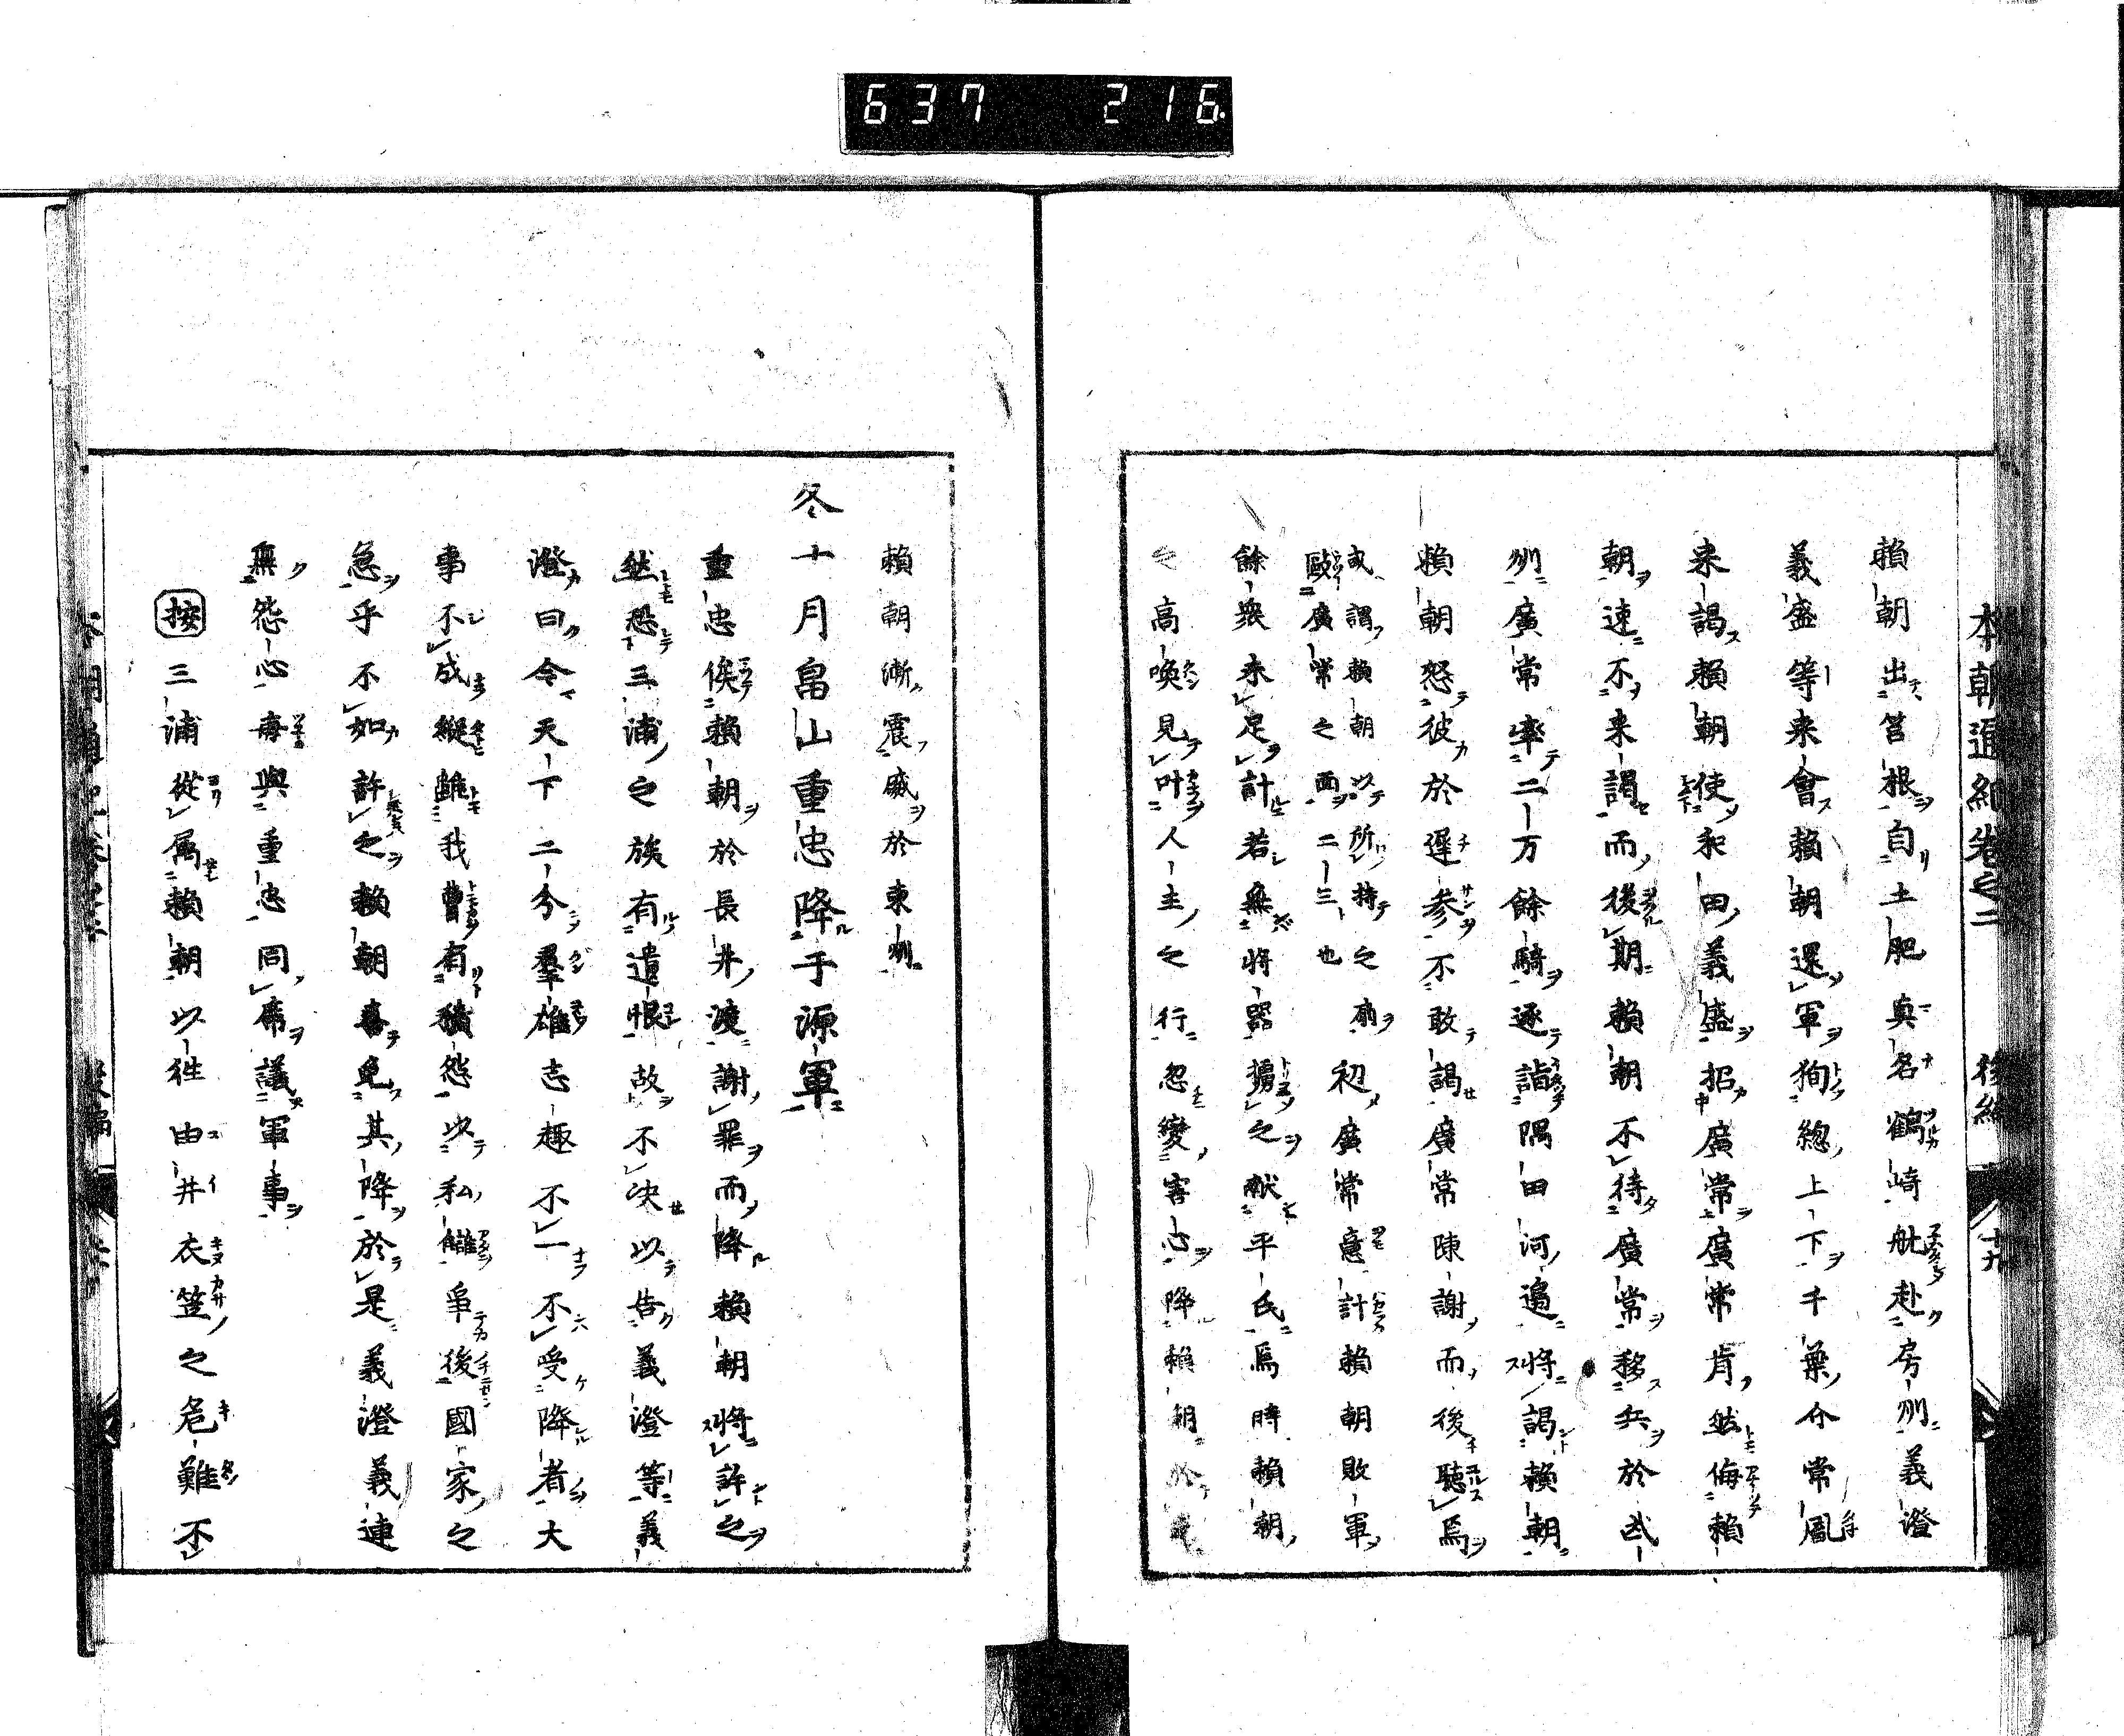 637 216
本朝通紀卷之二 後編 十九
頼朝出筥根自土肥真名鶴崎舩赴房州義澄
義盛等来會頼朝還軍狥總上下千葉介常胤
来謁頼朝使和田義盛招廣常廣常肯然侮頼
朝速不来謁而後期頼朝不待廣常移兵於武
州廣常率二万餘騎逐詣隅田河邉將謁頼朝
頼朝怒彼於遲参不敢謁廣常陳謝而後聴焉
或謂頼朝以所持之扇
毆廣常之面二三也
初廣常意計頼朝敗軍
餘衆未足計若無將器擒之献平氏焉時頼朝
之高喚見叶人主之行忽變害心降頼朝於
頼朝漸震威於東州
冬十月畠山重忠降于源軍
重忠俟頼朝於長井渡謝罪而降頼朝將許之
然恐三浦之族有遺恨故不决以告義澄等義
澄曰今天下二分羣雄志趣不一不受降者大
事不成縱雖我曹有積怨以私讎爭後國家之
急乎不如許之頼朝喜免其降於是義澄義連
無怨心毎與重忠同席議軍事
按三浦從属頼朝以往由井衣笠之危難不